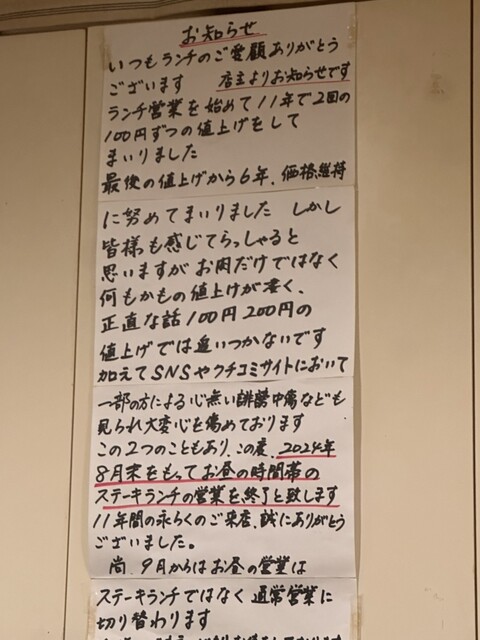 お知らせ
いつもランチのご愛顧ありがとう
ございます 店主よりお知らせです
ランチ営業を始めて11年で2回の
100円ずつの値上げをして
まいりました
最後の値上げから6年、価格維持
に努めてまいりました しかし
皆様も感じてらっしゃると
思いますがお肉だけではなく
何もかもの値上げが凄く、
正直な話100円200円の
値上げでは追いつかないです
加えてSNSやクチコミサイトにおいて
一部の方による心無い誹謗中傷なども
見られ大変心を傷めております
この2つのこともあり、この度、2024年
8月末をもってお昼の時間帯の
ステーキランチの営業を終了と致します
11年間の永らくのご来店、誠にありがとう
ございました。
尚、9月からはお昼の営業は
ステーキランチではなく通常営業に
切り替わります